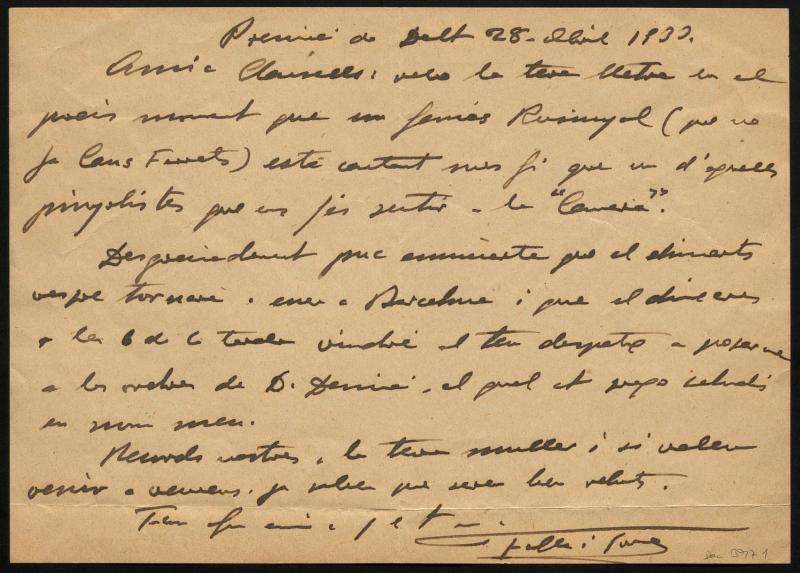 Premià de Dalt 28 - Abril 1933.
Amic Clausells: rebo la teva lletra en el
precís moment que un famós Rossinyol (que no
fa Cans Ferrets) està cantant mes fi que un d'aquells
pinyolistes que ens fas sentir a la "Camera".
Desgraciadament puc anunciarte que el dimarts
vespre tornaré a a Barcelona i que el dimecres
a les 6 de la tarda vindré al teu despatx a posarme
a les ordres de D. , al qual et prego saludis
en nom meu.
Records nostres a la teva muller i si voleu
venir a veurens, ja sabeu que sereu ben rebuts.
Teu
i